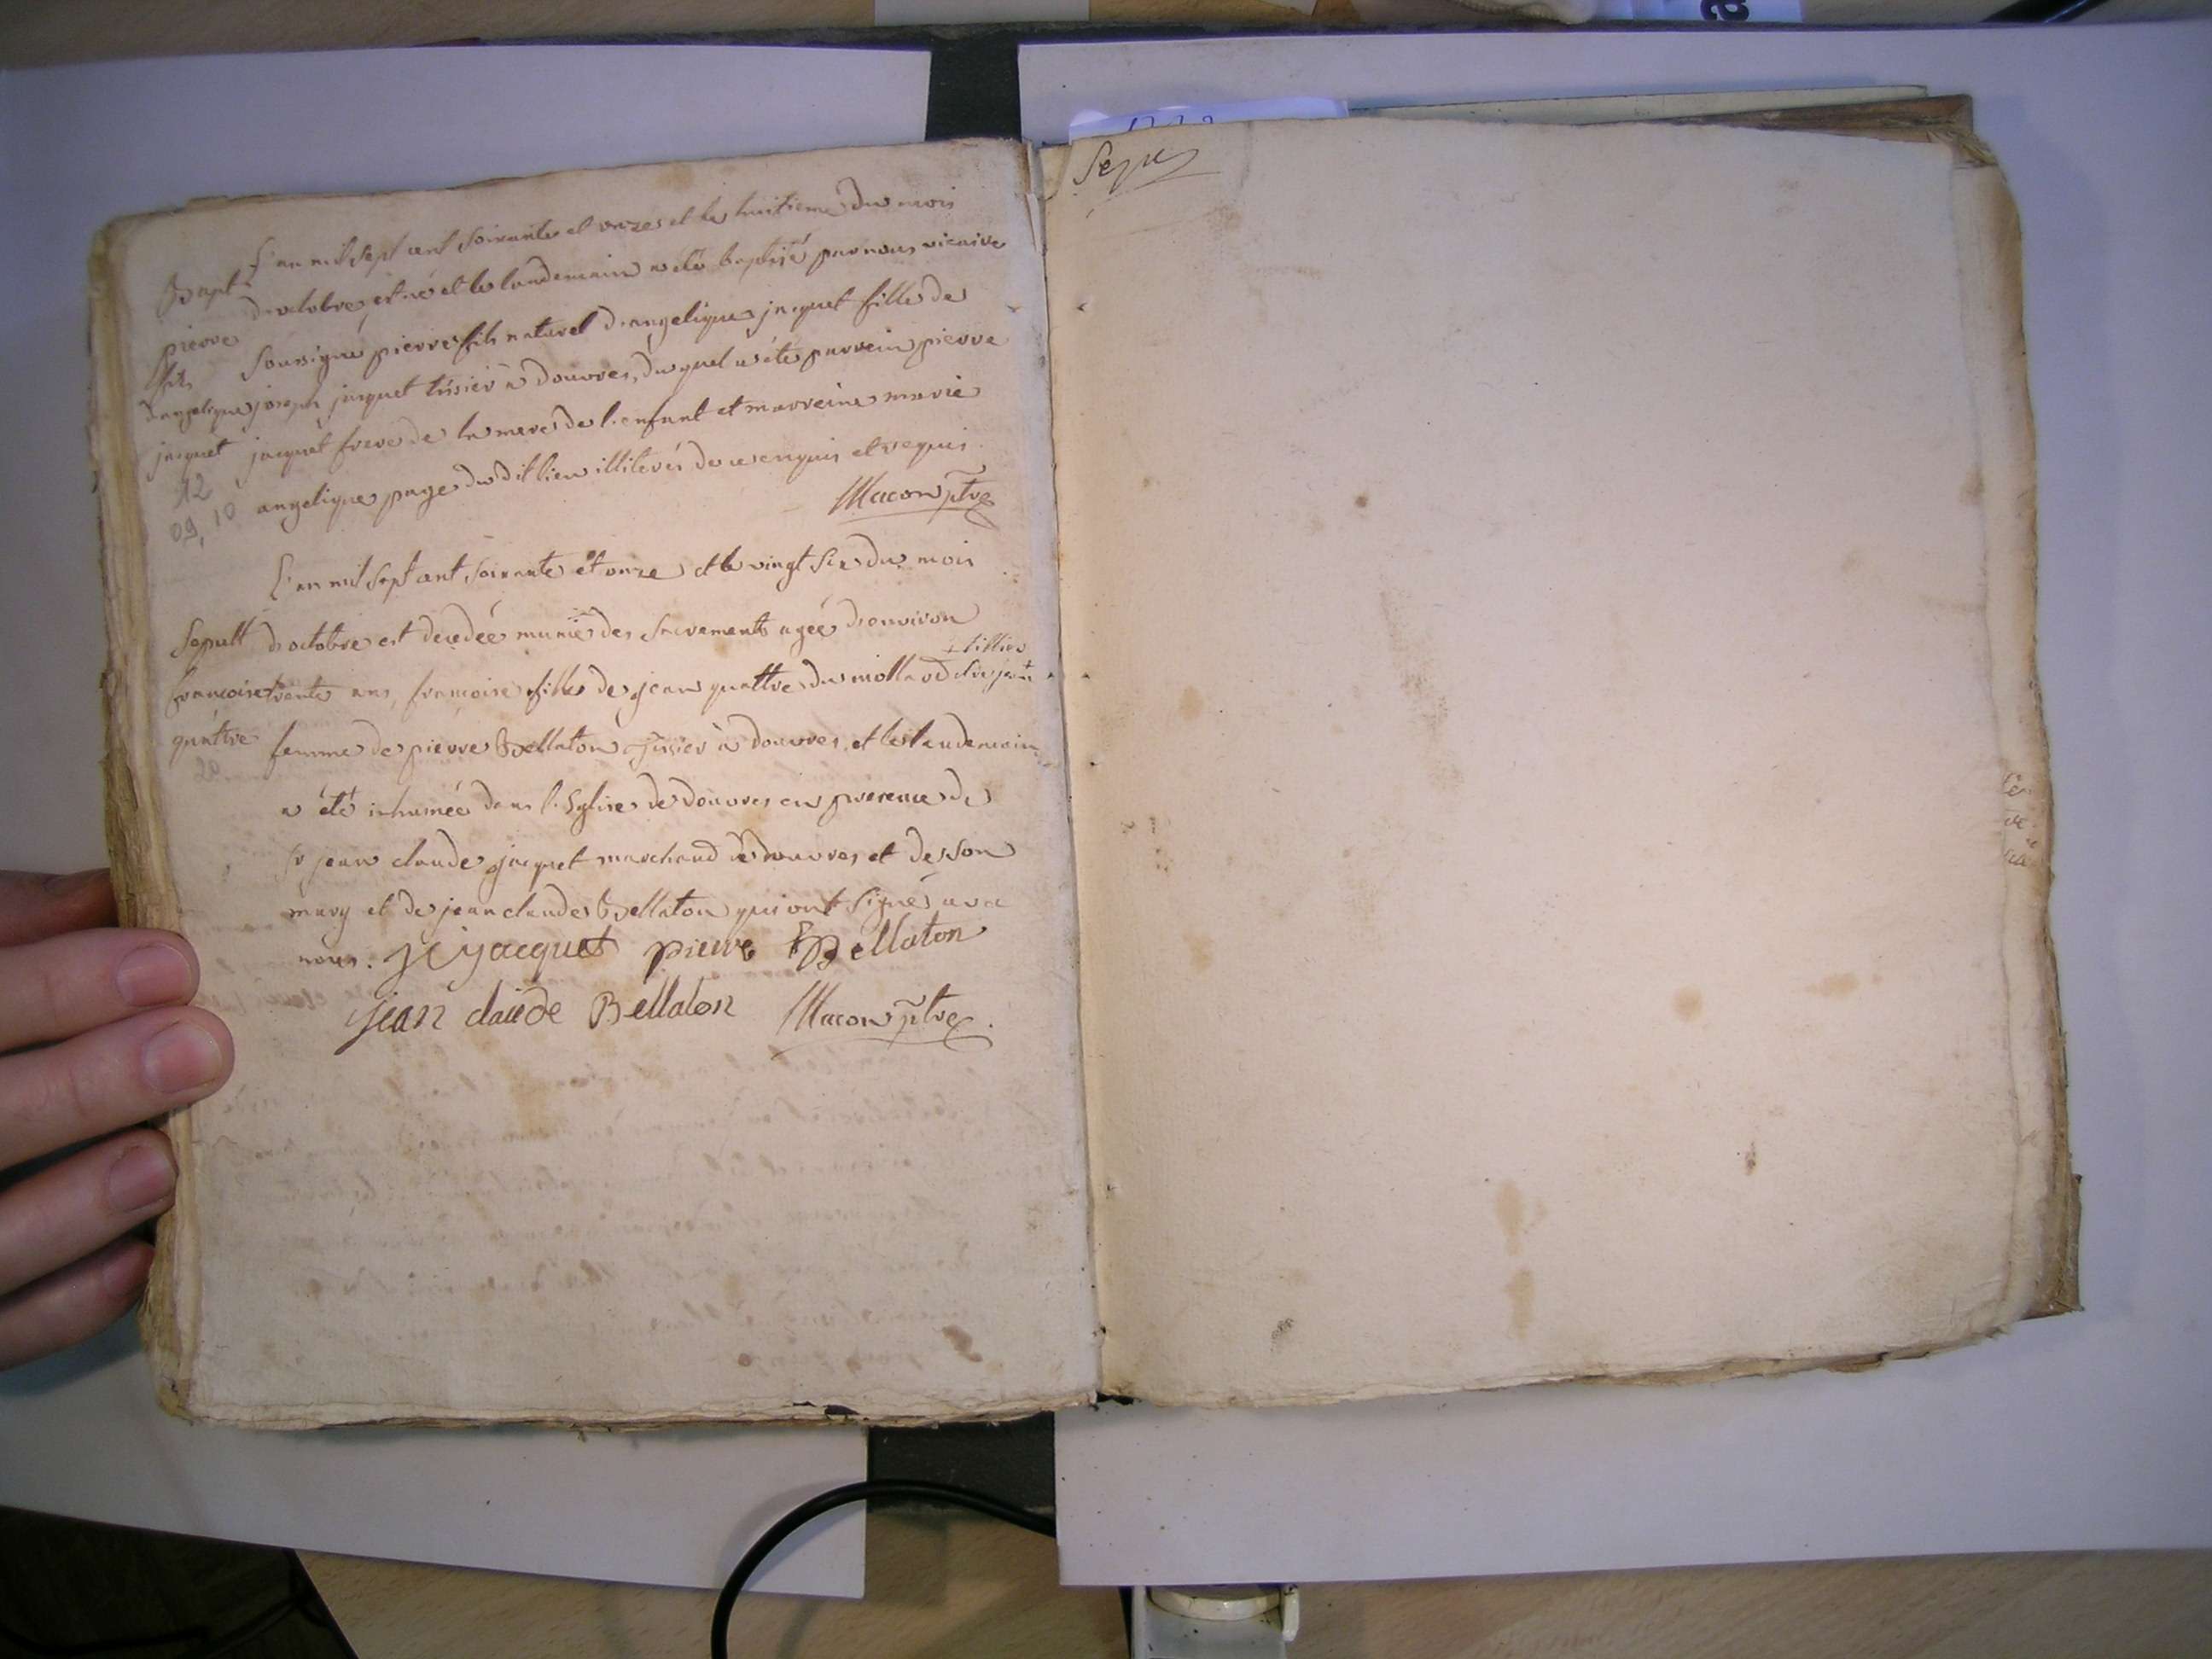 L'an mil sept cent soixante et onze et le huitieme du mois
Bapt. d'octobre est né et le landemain a été baptisé par nous vicaire
pierre soussigné pierre fils naturel d'angelique jacquet fille de
fils
d'angelique joseph jacquet tisier à douvres, du quel a été parrein pierre
jacquet jacquet frere de la mere de l'enfant et marreine marie
12
09, 10 angelique page du dit lieu illiterés de ce enquis et requis.
Macon ptre
L'an mil sept cent soixante et onze et le vingt six du mois
Sepult d'octobre est decedée munie des sacrements agée d'environ
tillier
françoise trente ans, françoise fille de jean quattre du mollard
quattre femme de pierre Bellaton tisier à douvres et le landemain
a été inhumée dans l'Eglise de douvres en presence de
sr jean claude jacquet marchand à douvres et de son
mary et de jean claude Bellaton qui ont signés avec
nous. JC jacquet pierre Bellaton
jean claude Bellaton Macon ptre.